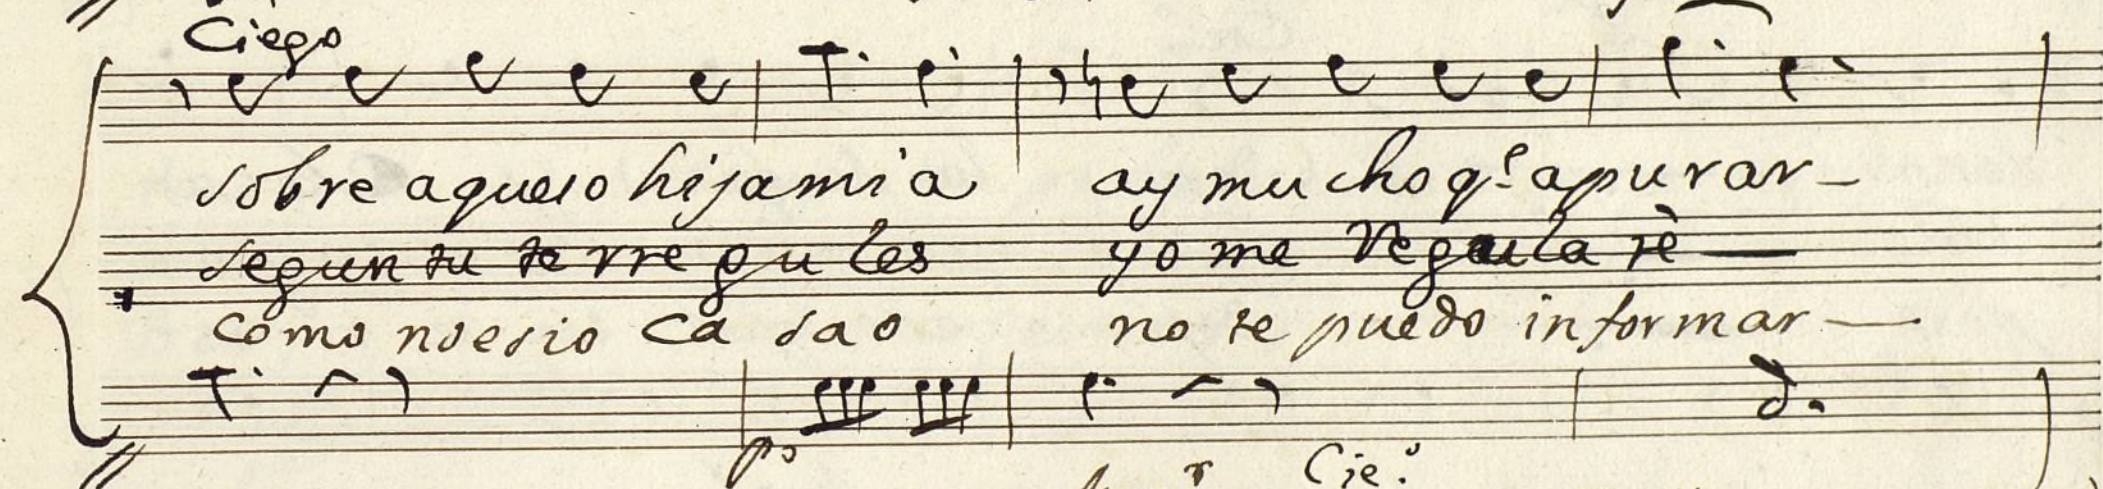 Ciego
sobre aqueso hija mi a ay mu cho q.e apu rar
segun tu te rre gu les yo me Regula rè
como no e sio ca sa o no te puedo in for mar
po
Cie.o